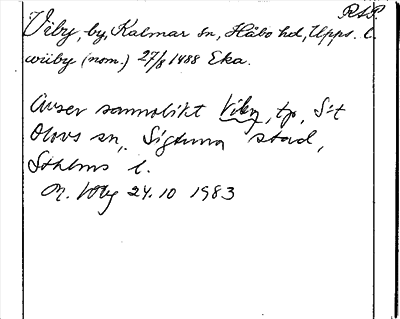 RAP.
Viby, by, Kalmar sn, Håbo hd, Upps. l.
wiiby (nom.) 27/8 1488 Eka.
Avser sannolikt Viby, tp, S:t
Olovs sn, Sigtuna stad,
Sthlms l.
M. Wbg 24.10 1983